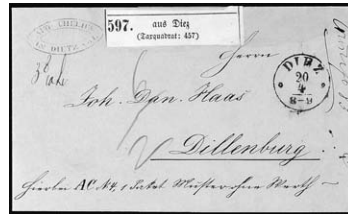 597. aus Diez
(Taxquadrat: 457)
Herrn
DIEZ
20
4
8-9
Joh. Dan. Haas
Dillenburg
Hierbei AC N 4, 1 Packet Muster ohne Werth